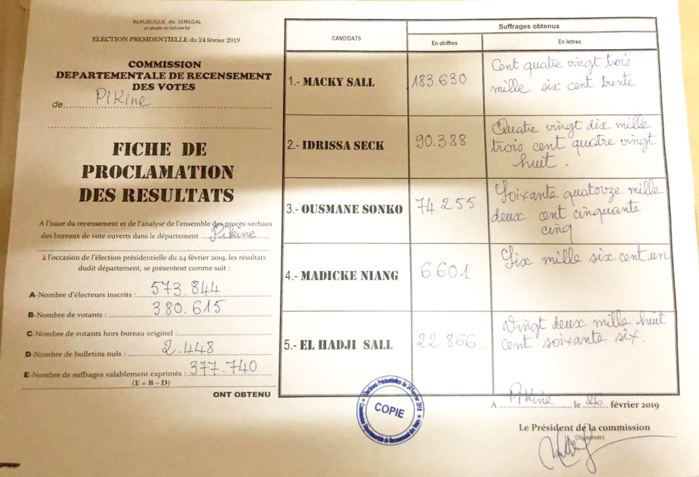 REPUBLIQUE du SENEGAL
un peuple un but une foi
ELECTION PRESIDENTIELLE du 24 février 2019
COMMISSION
DEPARTEMENTALE DE RECENSEMENT
DES VOTES
de Pikine
FICHE DE
PROCLAMATION
DES RESULTATS
A l'issue du recensement et de l'analyse de l'ensemble des procès-verbaux
des bureaux de vote ouverts dans le département Pikine
à l'occasion de l'élection présidentielle du 24 février 2019, les résultats
dudit département, se présentent comme suit :
A-Nombre d'électeurs inscrits : 573.844
B-Nombre de votants : 380.615
C-Nombre de votants hors bureau originel :
D-Nombre de bulletins nuls : 2.448
E-Nombre de suffrages valablement exprimés : 377.740
(E = B – D)
ONT OBTENU
CANDIDATS
Suffrages obtenus
En chiffres
En lettres
1.- MACKY SALL
183.630
Cent quatre vingt trois
mille six cent trente
2.- IDRISSA SECK
90.388
Quatre vingt dix mille
trois cent quatre vingt
huit.
3.- OUSMANE SONKO
74 255
Soixante quatorze mille
deux cent cinquante
cinq
4.- MADICKE NIANG
6 601
Six mille six cent un
5.- EL HADJI SALL
22.866.
Vingt deux mille huit
cent soixante six.
COPIE
A Pikine, le 26 février 2019
Le Président de la commission
(Signature)